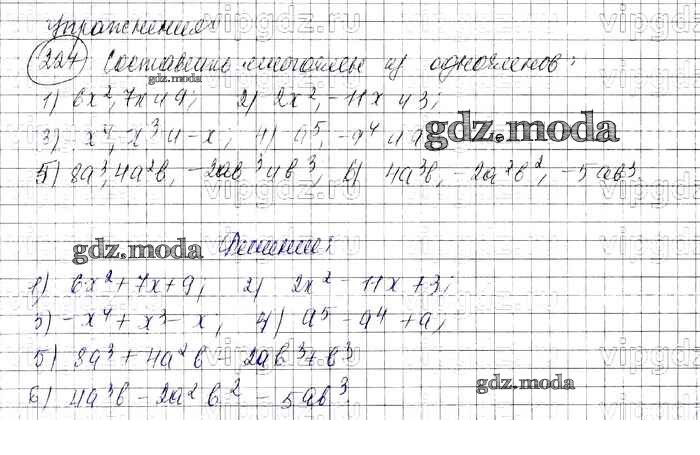 Упражнения
224 Составить многочлены из одночленов:
1) 6x², 7x и 9; 2) 2x², -11x и 3;
3) -x⁴, x³ и -x; 4) a⁵, -a⁴ и a
5) 8a³, 4a²b, -2ab³ и b³, 6) 4a³b, -2a²b², -5ab³
Решение:
1) 6x² + 7x + 9; 2) 2x² - 11x + 3;
3) -x⁴ + x³ - x; 4) a⁵ - a⁴ + a;
5) 8a³ + 4a²b - 2ab³ + b³
6) 4a³b - 2a²b² - 5ab³.
gdz.moda
gdz.moda
gdz.moda
gdz.moda